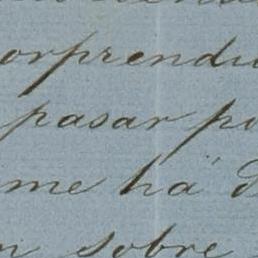 orprendi
pasar po
me ha
sobre